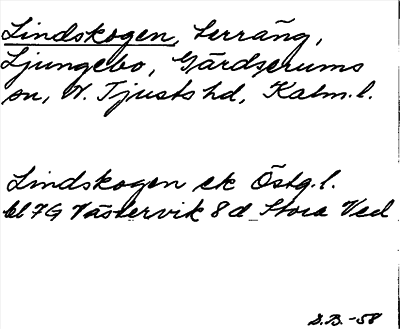 Lindskogen, terräng,
Ljungebo, Gärdserums
sn, N. Tjusts hd, Kalm.l.
Lindskogen ek Östg.l.
bl 7G Västervik 8d Stora Ved
S.B.-58